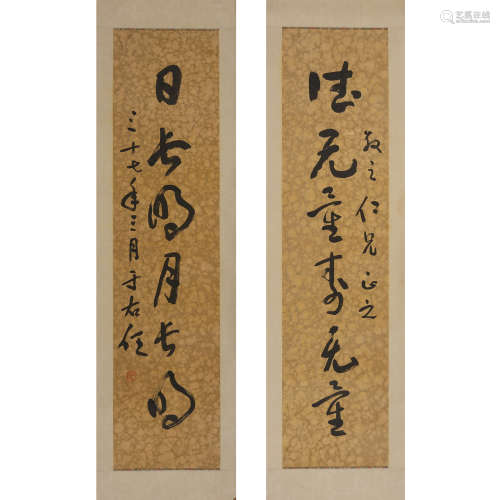 德无量寿无量
敬之仁兄正之
日长明月长明
三十七年三月于右任